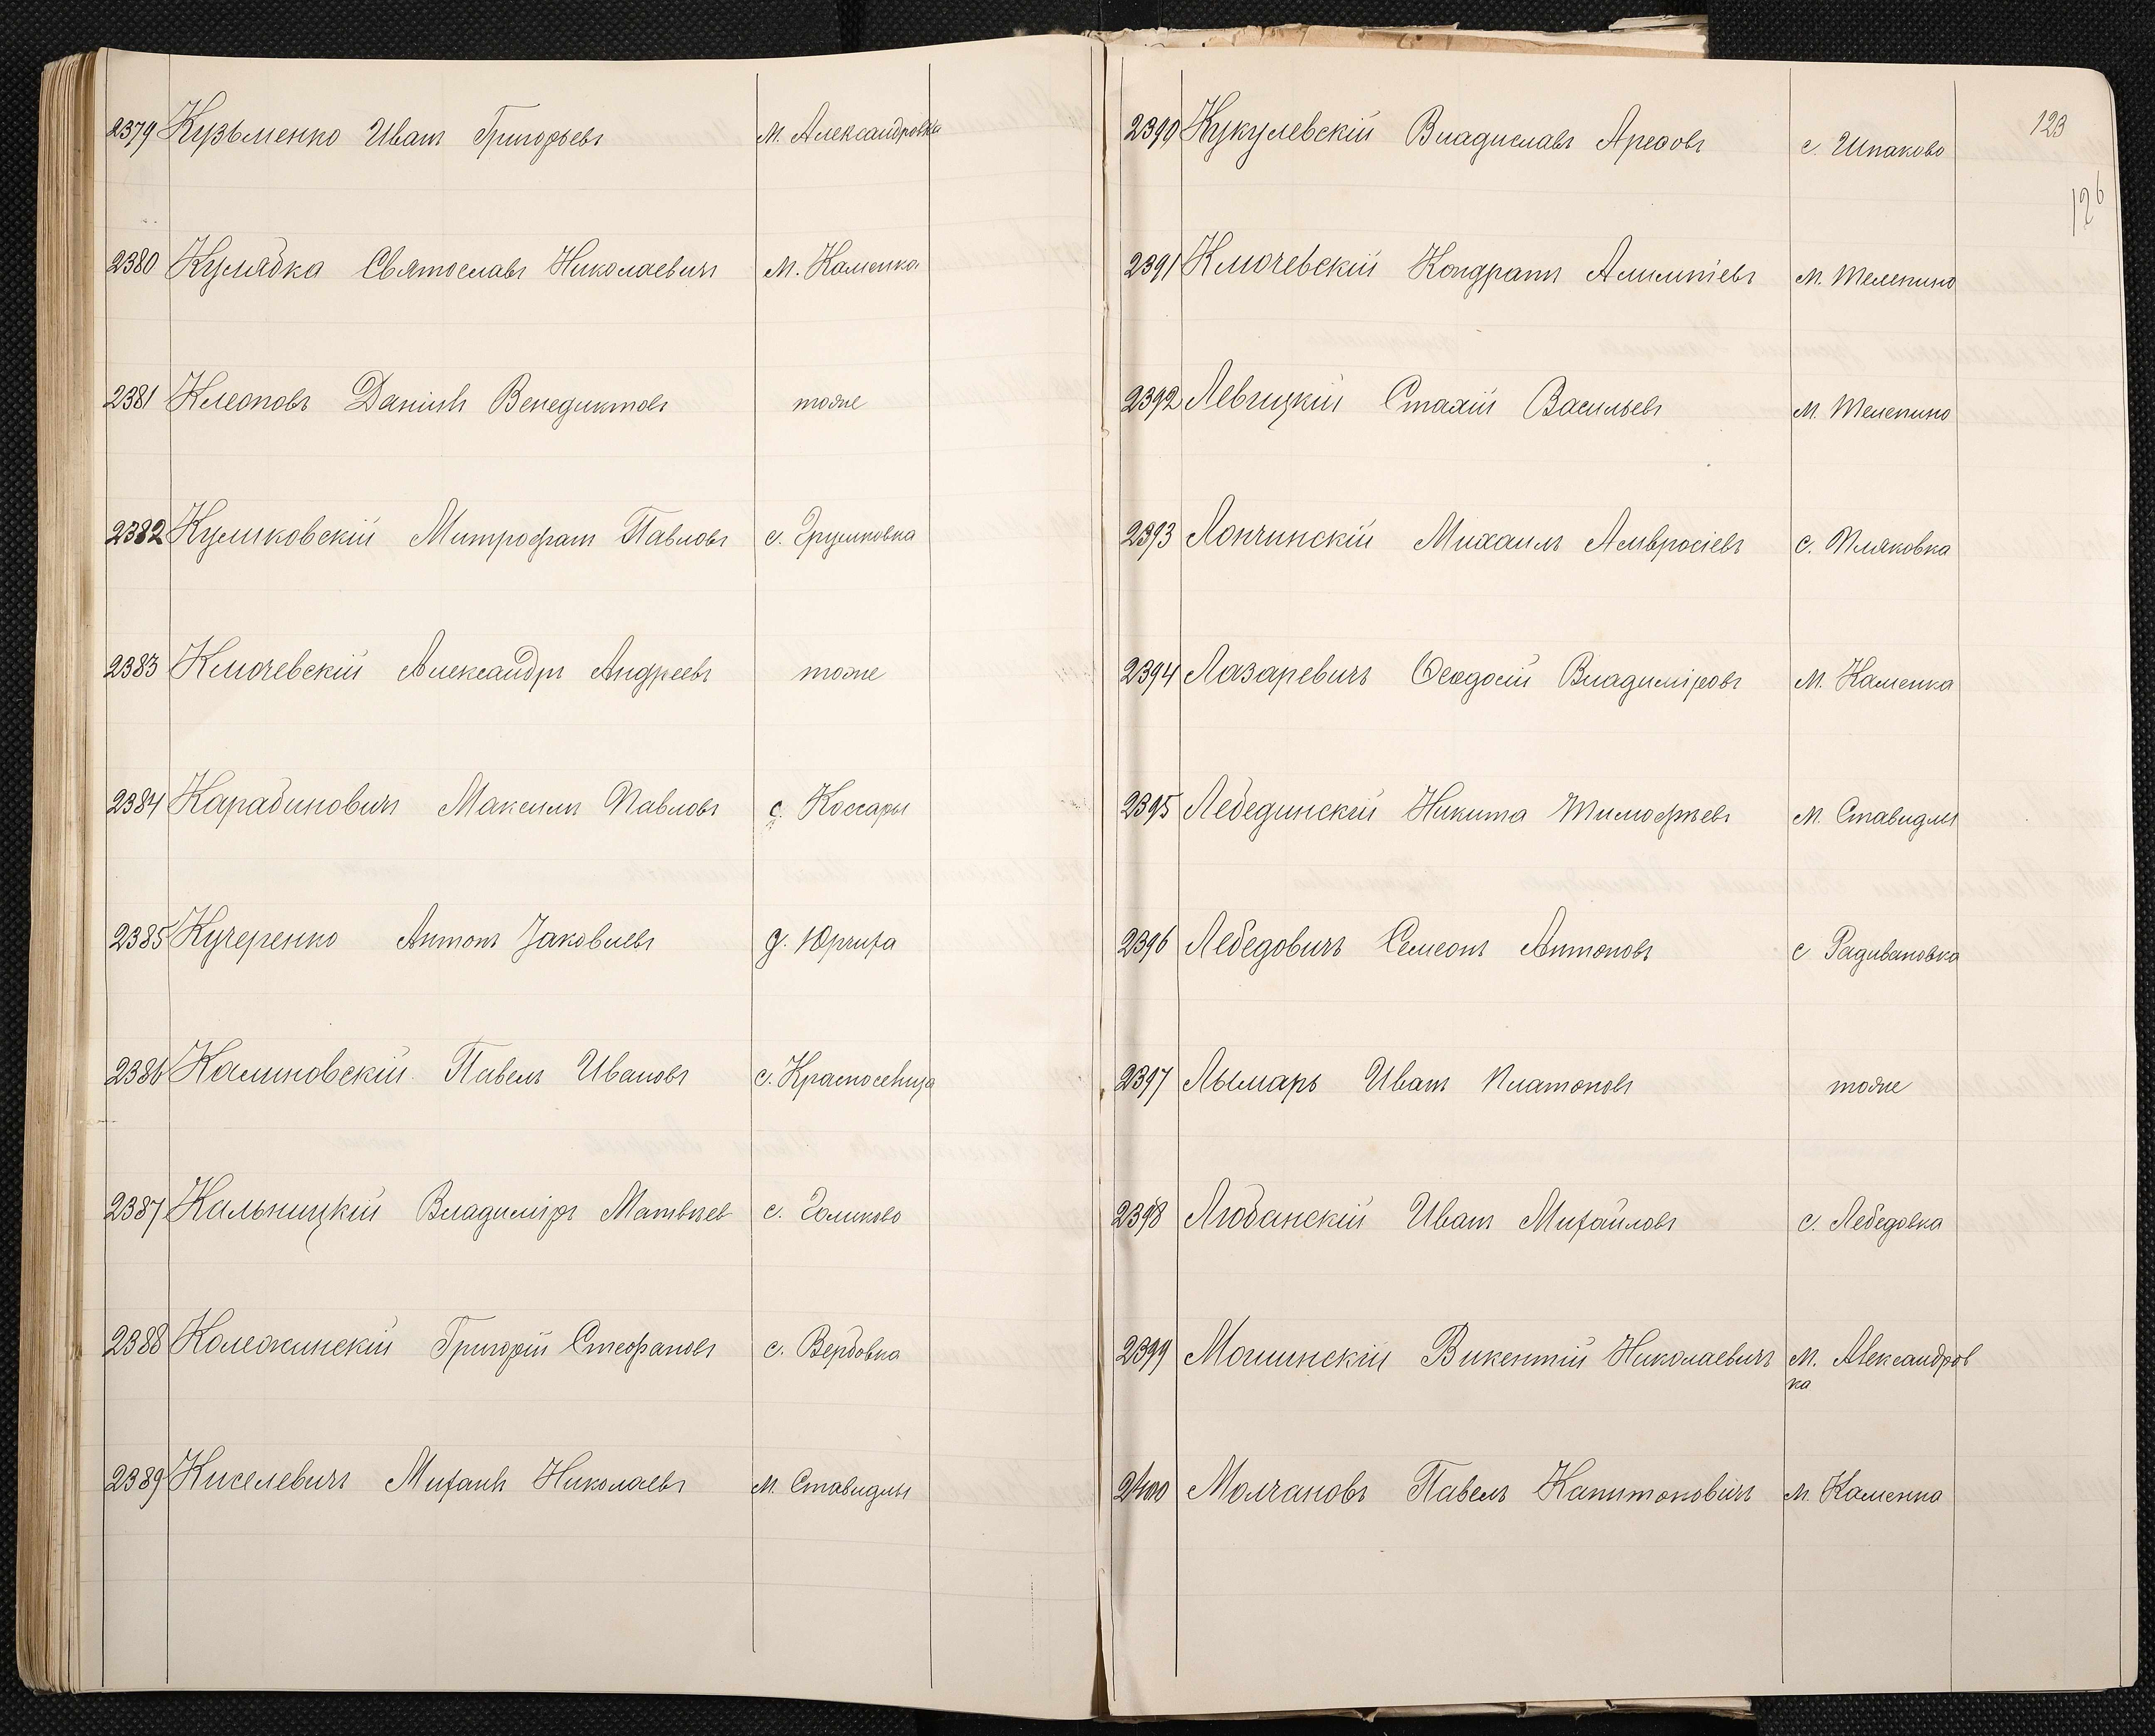 2379 Кузьменко Иванъ Григорьевъ м. Александровка
2380 Кулябка Святославъ Николаевичъ м. Каменка
2381 Клеоповъ Даніилъ Венедиктовъ тоже
2382 Куликовскій Митрофанъ Павловъ с. Грушковка
2383 Ключевскій Александръ Андреевъ тоже
2384 Карабиновичъ Максимъ Павловъ с. Коссары
2385 Кучеренко Антонъ Яковлевъ д. Юрчиха
2386 Калиновскій Павелъ Ивановъ с. Красносѣлка
2387 Кальницкій Владиміръ Матвѣев с. Голиково
2388 Коложинскій Григорій Стефановъ с. Вербовка
2389 Киселевичъ Михаилъ Николаевъ м. Ставидлы
123
126
2390 Кукулевскій Владиславъ с. Шпаково
2391 Ключевскій Кондратъ Алимпіевъ м. Телепино
2392 Левицкій Стахій Васильевъ м. Телепино
2393 Лопчинскій Михаилъ Амвросіевъ с. Пляковка
2394 Лазаревичъ Ѳеодосій Владиміровъ м. Каменка
2395 Лебединскій Никита Тимофѣевъ м. Ставидлы
2396 Лебедовичъ Семеонъ Антоновъ с Радивановка
2397 Лымарь Иванъ Платоновъ тоже
2398 Любанскій Иванъ Михайловъ с. Лебедовка
2399 Мошинскій Викентій Николаевичъ м. Александров
ка
2400 Молчановъ Павелъ Капитоновичъ м. Каменка